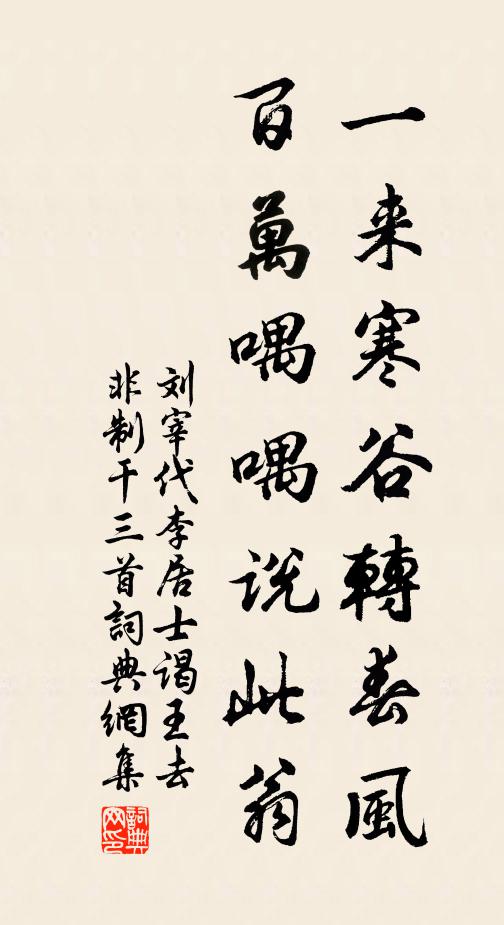 一来寒谷轉春風
百萬喁喁説此翁
刘宰代李居士谒王去
非制干三首詞典網集
詞典
网印